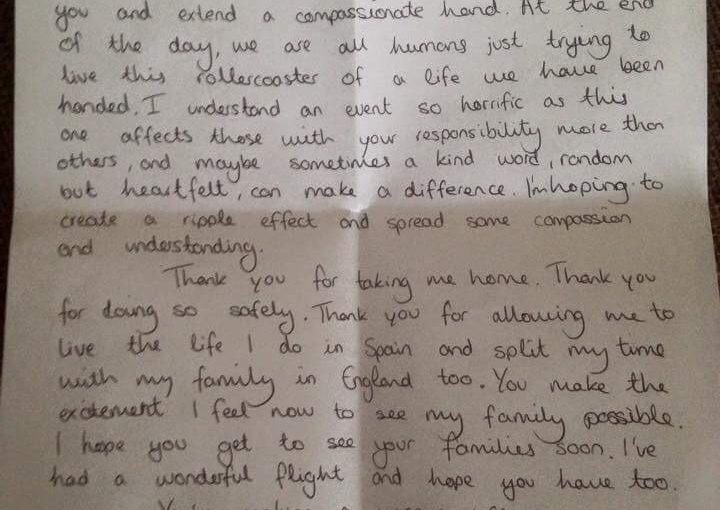 you and extend a compassionate hand. At the end
of the day, we are all humans just trying to
live this rollercoaster of a life we have been
handed. I understand an event so horrific as this
one affects those with your responsibility more than
others, and maybe sometimes a kind word, random
but heartfelt, can make a difference. I'm hoping to
create a ripple effect and spread some compassion
and understanding.
Thank you for taking me home. Thank you
for doing so safely. Thank you for allowing me to
live the life I do in Spain and split my time
with my family in England too. You make the
excitement I feel now to see my family possible.
I hope you get to see your families soon. I've
had a wonderful flight and hope you have too.